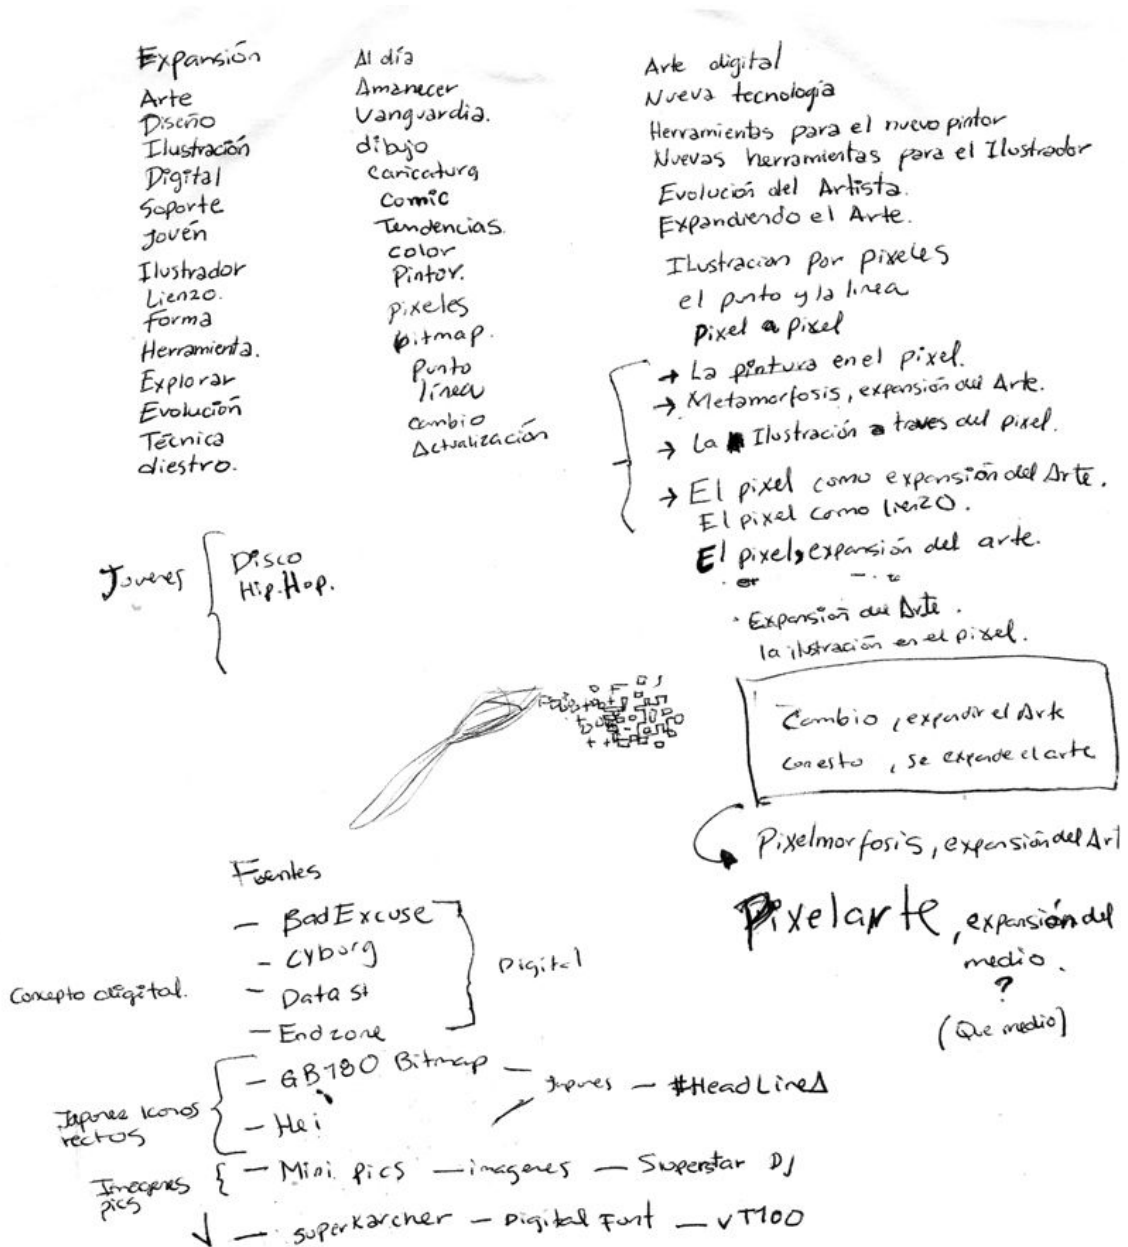 Expansión
Arte
Diseño
Ilustración
Digital
Soporte
Jovén
Ilustrador
Lienzo.
Forma
Herramienta.
Explorar
Evolución
Técnica
diestro.
Al día
Amanecer
Vanguardia.
dibujo
caricatura
Comic
Tendencias.
color
Pintor.
pixeles
bitmap.
Punto
línea
cambio
Actualización
Arte digital
Nueva tecnología
Herramientas para el nuevo pintor
Nuevas herramientas para el Ilustrador
Evolución del Artista.
Expandiendo el Arte.
Ilustracion por pixeles
el punto y la linea
Pixel a pixel
→ La pintura en el pixel.
→ Metamorfosis, expansión del Arte.
→ La Ilustración a traves del pixel.
→ El pixel como expansión del Arte.
El pixel como lienzo.
El pixel, expansión del arte.
· Expansión del Arte.
la ilustración en el pixel.
Jovenes
Disco
Hip.Hop.
Cambio, expandir el Arte
con esto, se expande el arte
Pixelmorfosis, expansión del Art
Pixelarte, expansión del
medio.
?
(Que medio)
Fuentes
— Bad Excuse
— Cyborg
— Data St
— Endzone
Digital
Concepto digital.
— GB180 Bitmap —
— Hei
Japones — #HeadLineA
Japones Iconos
rectos
Imagenes
pics
— Mini pics — imagenes — Superstar DJ
— superkarcher — Digital Font — VT100